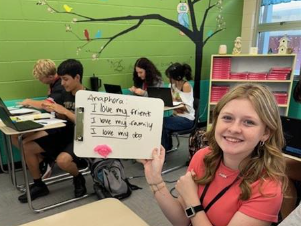 Anaphora
I love my friend
I love my family
I love my dog